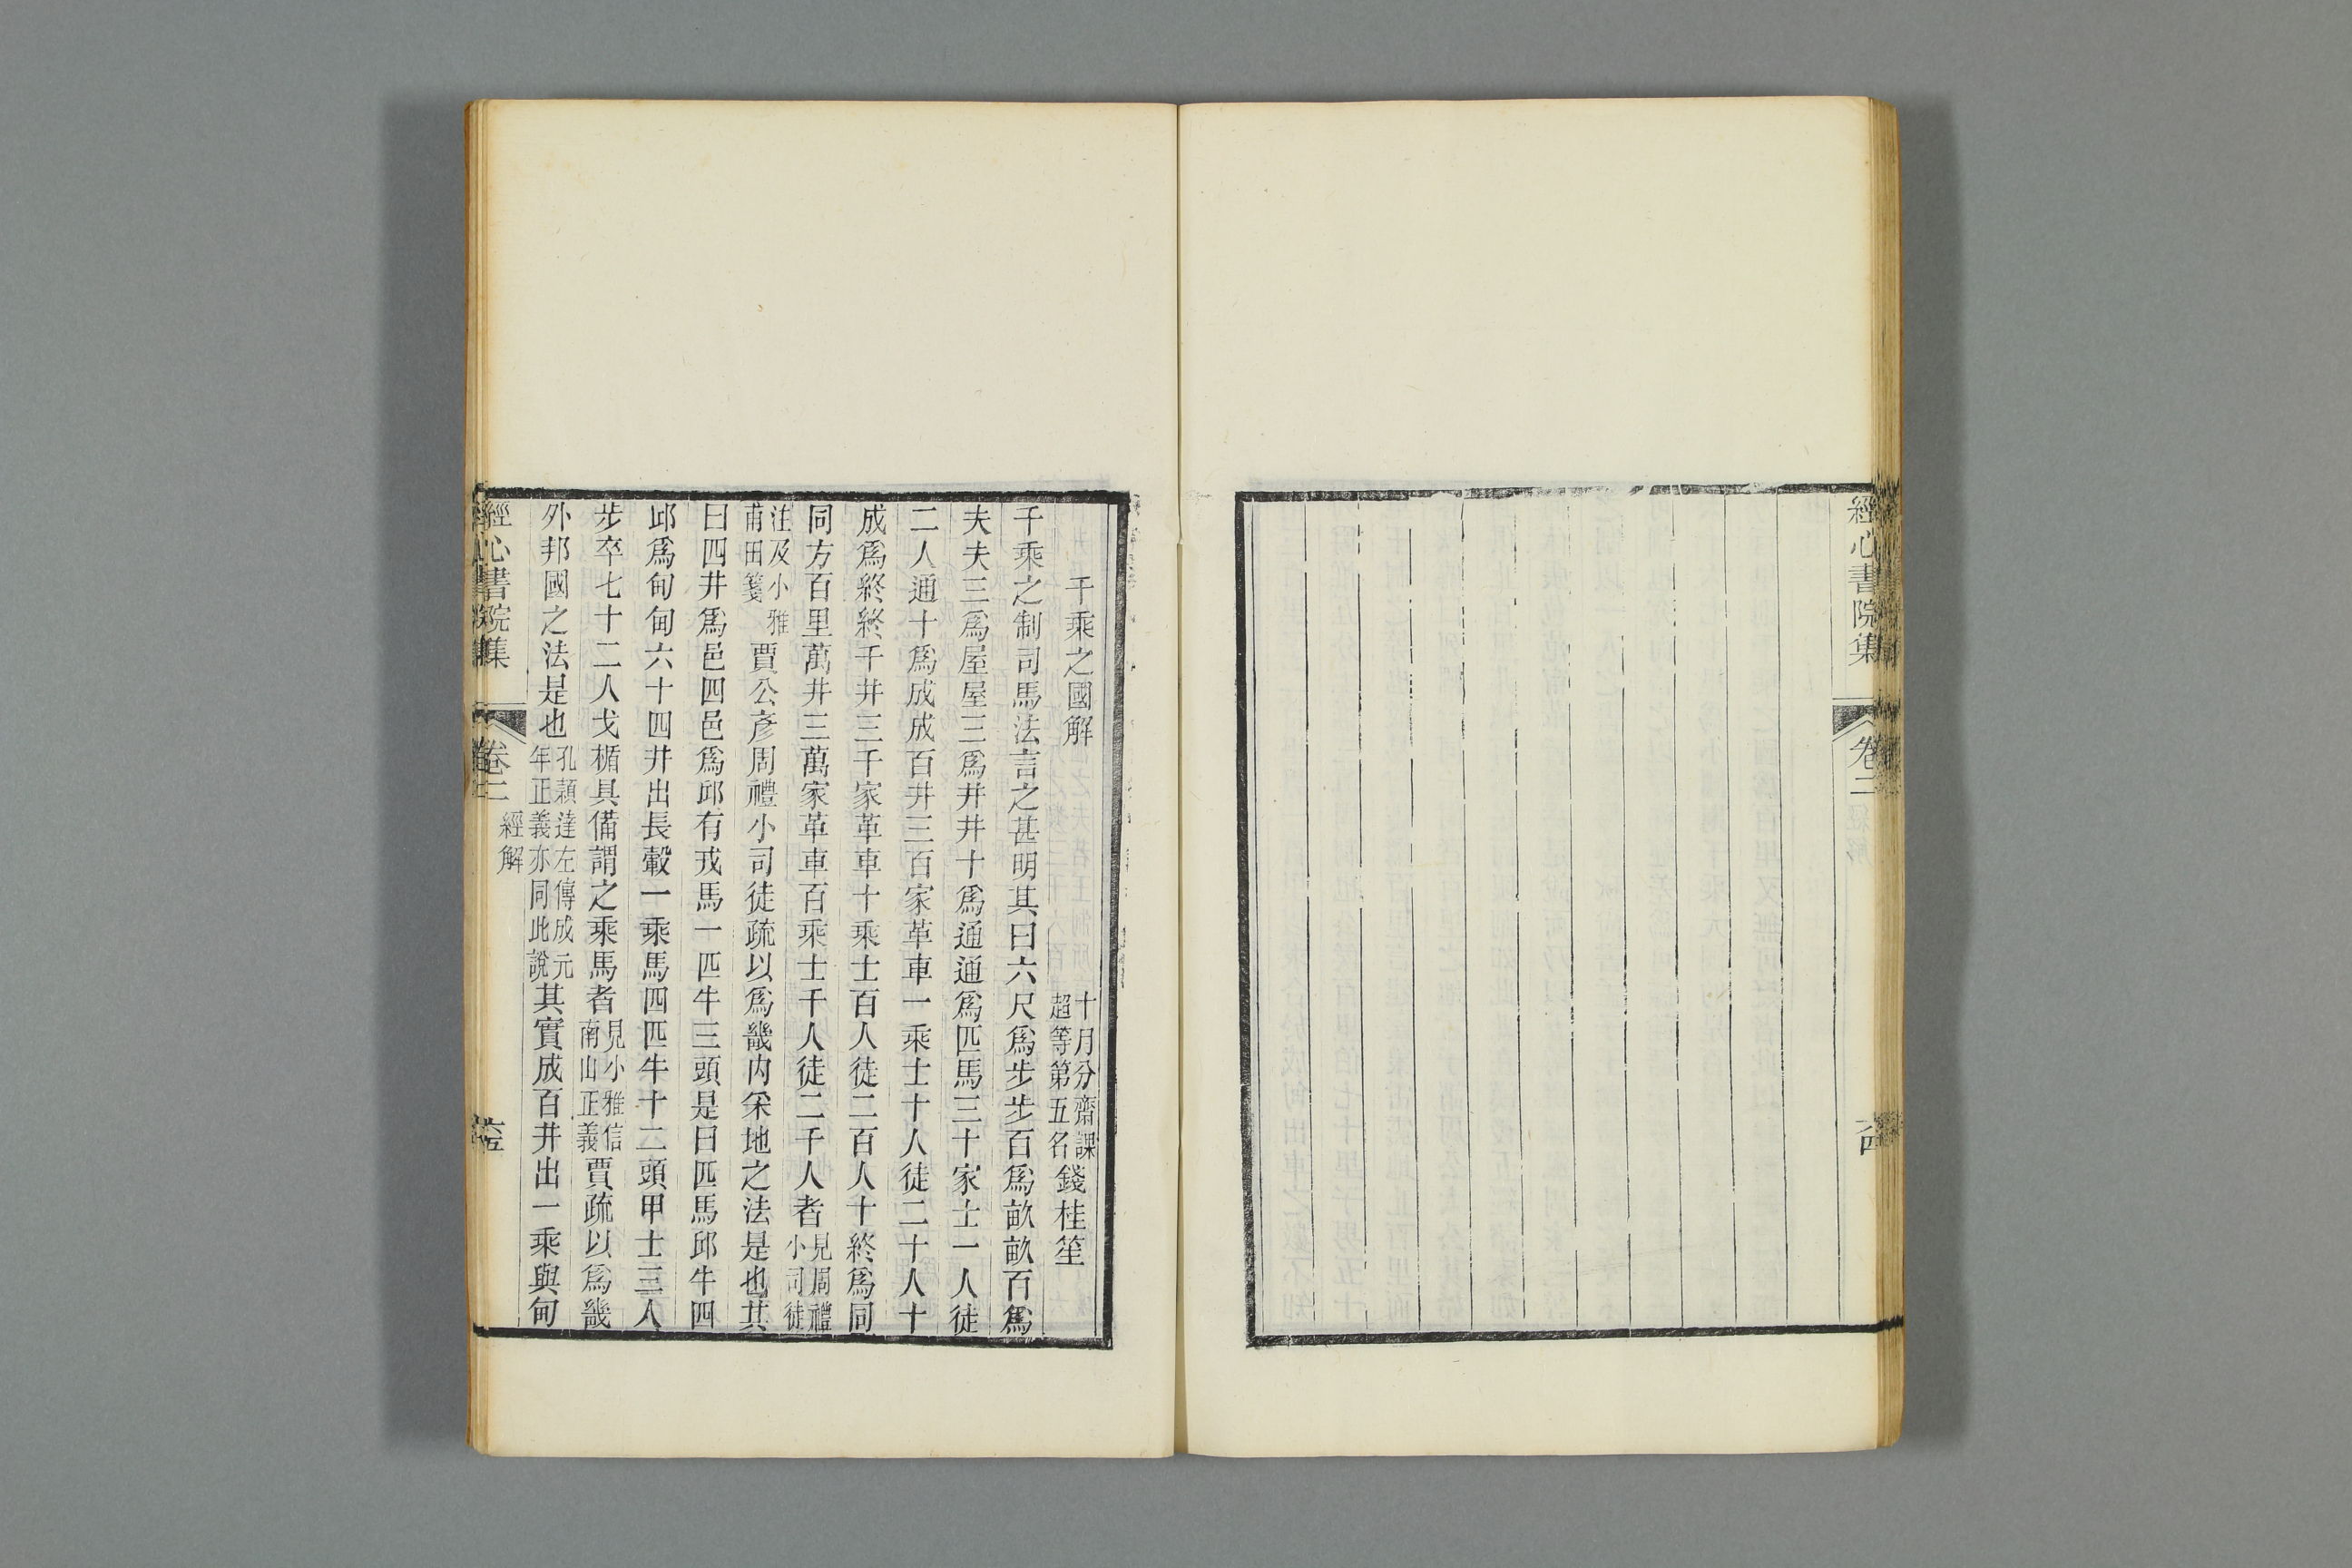 經心書院集
卷二
千乘之國解
十月分齋課
超等第五名
錢桂笙
千乘之制司馬法言之甚明其曰六尺爲步步百爲畝畝百爲
夫夫三爲屋屋三爲井井十爲通通爲匹馬三十家士一人徒
二人通十爲成成百井三百家革車一乘士十人徒二十人十
成爲終終千井三千家革車十乘士百人徒二百人十終爲同
同方百里萬井三萬家革車百乘士千人徒二千人者見周禮小司徒
注及小雅甫田箋賈公彥周禮小司徒疏以爲畿内采地之法是也其
曰四井爲邑四邑爲邱有戎馬一匹牛三頭是曰匹馬邱牛四
邱爲甸甸六十四井出長轂一乘馬四匹牛十二頭甲士三人
步卒七十二人戈楯具備謂之乘馬者見小雅信南山正義賈疏以爲畿
外邦國之法是也孔穎達左傳成元年正義亦同此說其實成百井出一乘與甸
經心書院集
卷二
經解